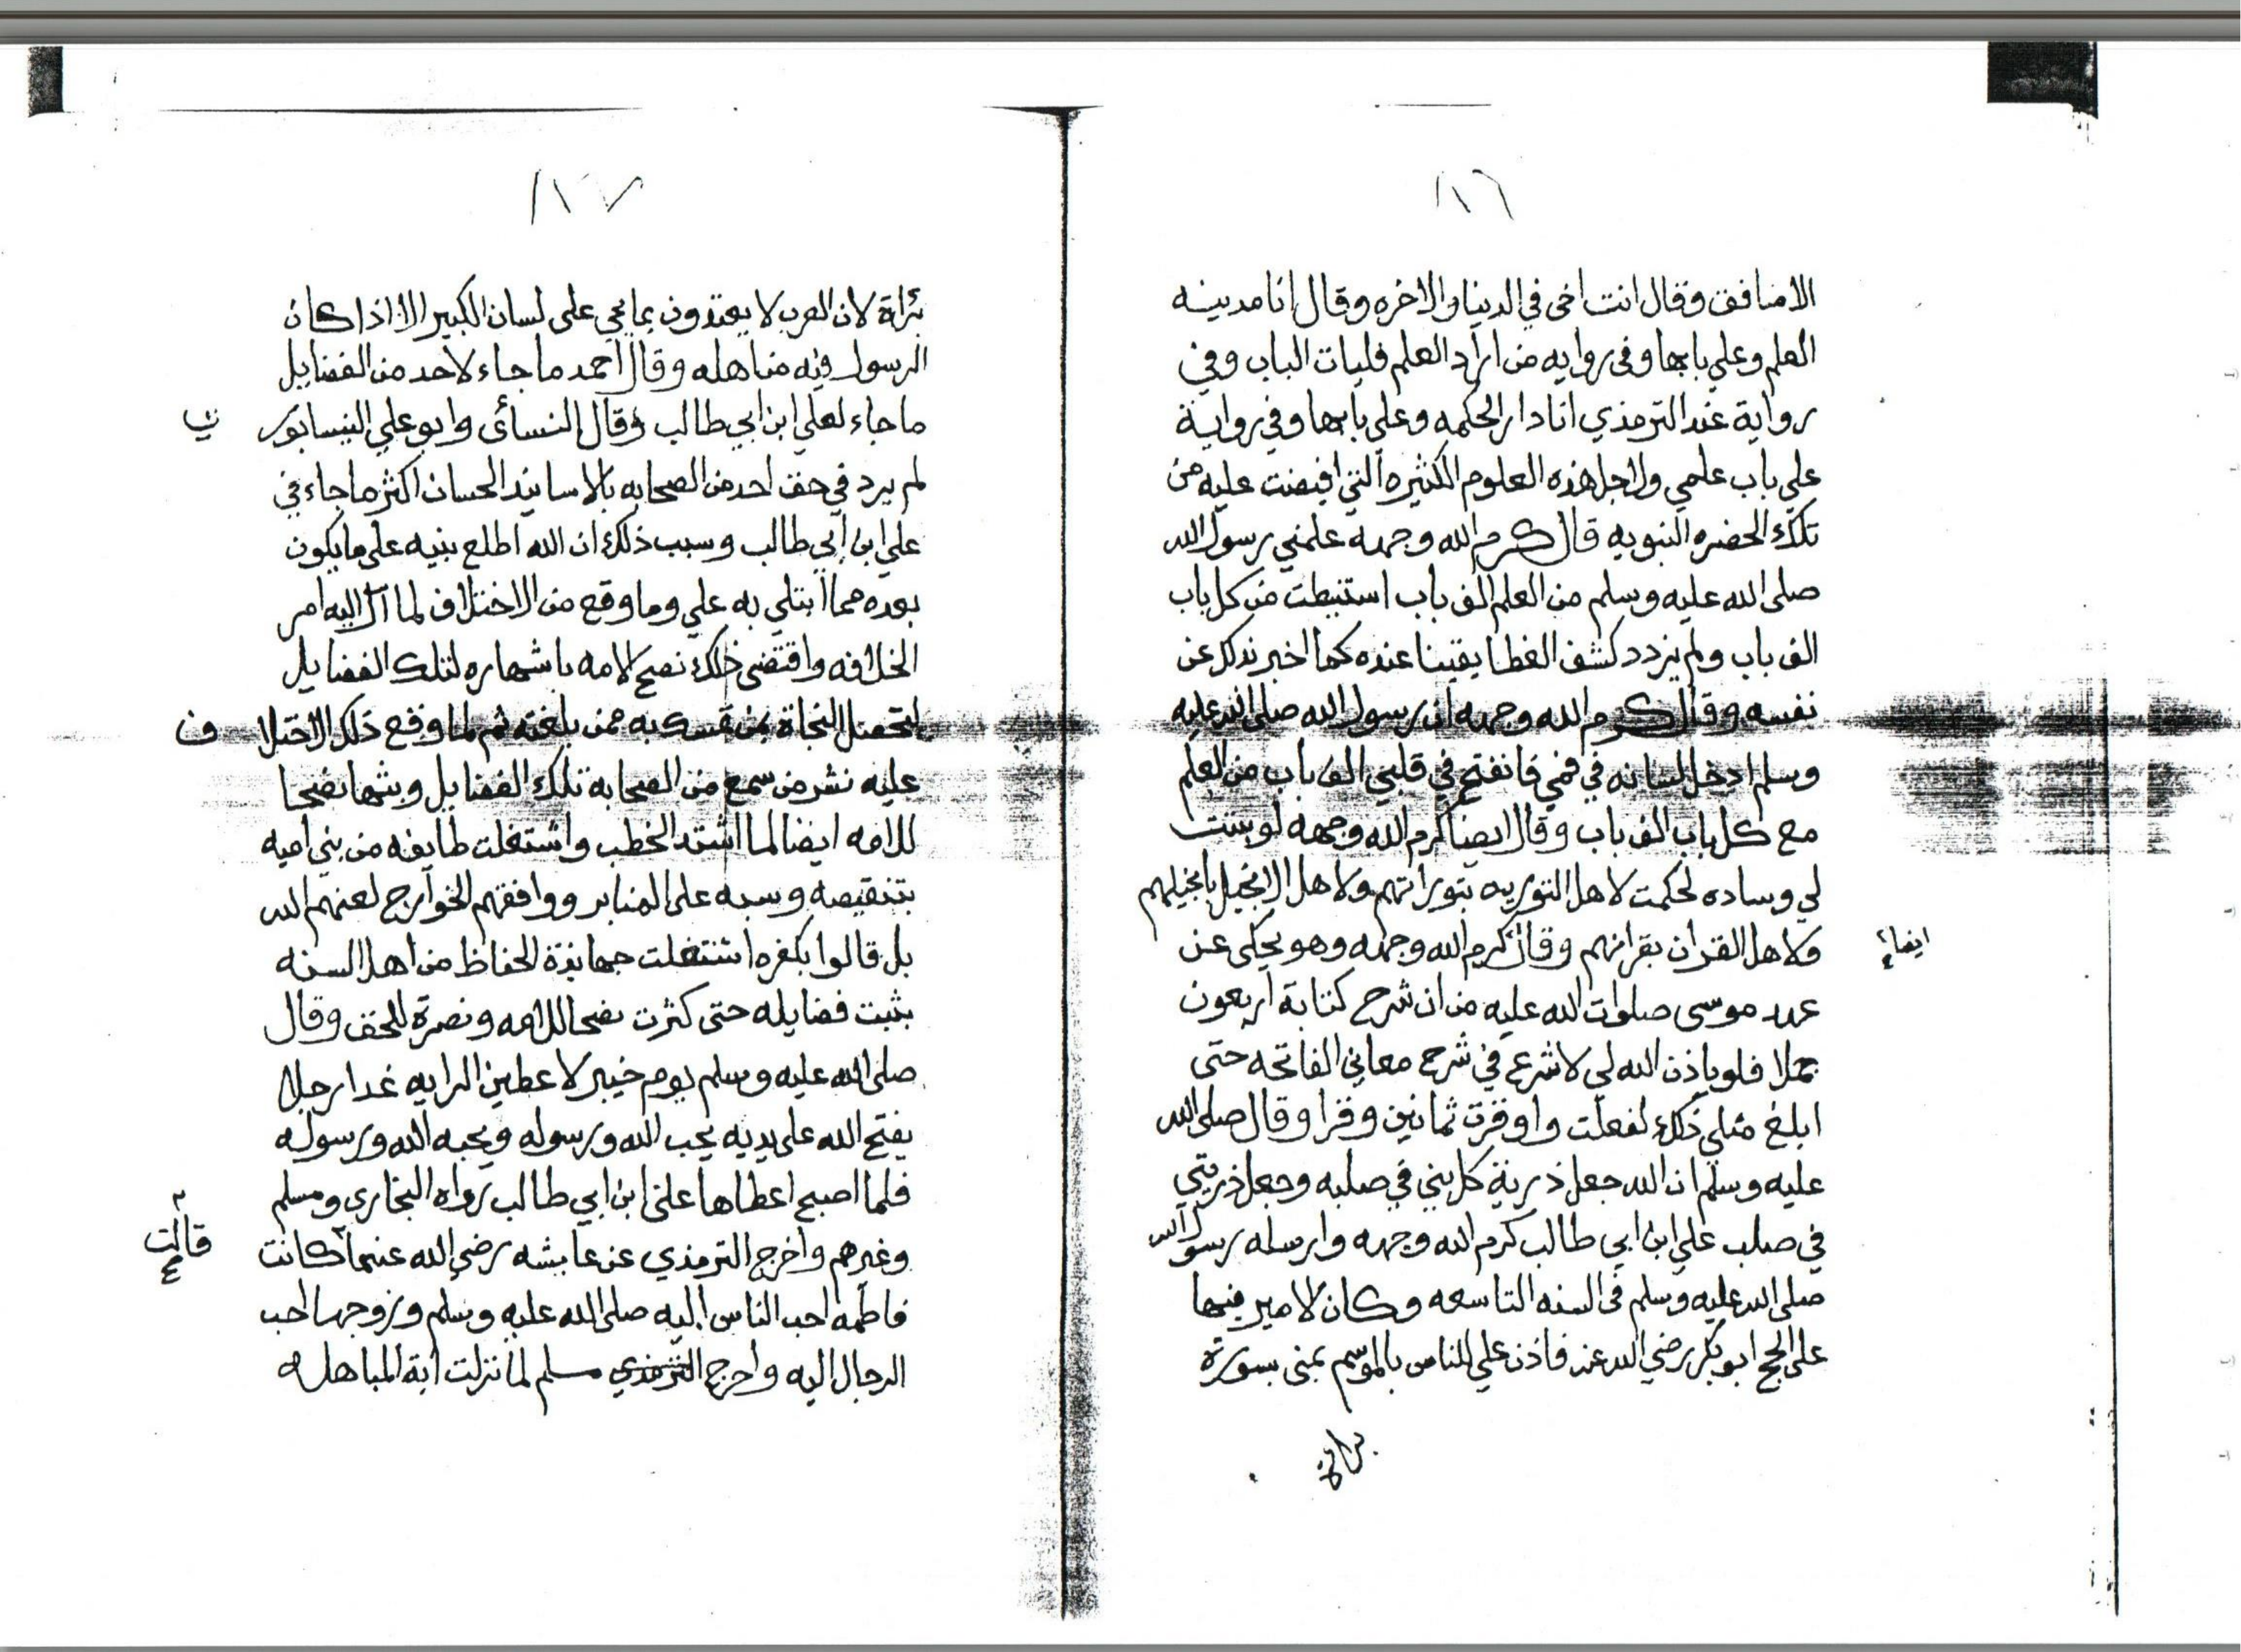 ١٨٦
الا منافق وقال انت اخي في الدنيا والاخره وقال انا مدينه
العلم وعلي بابها وفي روايه من اراد العلم فليات الباب وفي
رواية عند الترمذي انا دار الحكمه وعلي بابها وفي رواية
علي باب علمي ولاجل هذه العلوم الكثيره التي افيضت عليه من
تلك الحضره النبويه قال كرم الله وجهه علمني رسول الله
صلى الله عليه وسلم من العلم الف باب استنبطت من كل باب
الف باب ولم يزدد كشف الغطا يقينا عنده كما اخبر بذلك عن
نفسه وقال كرم الله وجهه ان رسول الله صلى الله عليه
وسلم ادخل لسانه في فمي فانفتح في قلبي الف باب من العلم
مع كل باب الف باب وقال ايضا كرم الله وجهه لو بنيت
لي وساده لحكمت لاهل التوريه بتوراتهم ولاهل الانجيل بانجيلهم
ولاهل القران بقرانهم وقال كرم الله وجهه وهو يحكى عن
ايضا
عدد موسى صلوات الله عليه من ان شرح كتابة اربعون
جملا فلو ياذن الله لي لاشرع في شرح معاني الفاتحه حتى
ابلغ مثلي ذلك لفعلت واوقرت ثمانين وقرا وقال صلى الله
عليه وسلم ان الله جعل ذرية كل بني في صلبه وجعل ذريتي
في صلب علي ابن ابي طالب كرم الله وجهه وارسله رسول الله
صلى الله عليه وسلم في السنه التاسعه وكان الامير فيها
على الحج ابو بكر رضي الله عنه فاذن علي للناس بالموسم بمنى بسورة
براة
١٨٧
براة لان العرب لا يعتدون بما يجي على لسان الكبير الا اذا كان
الرسول فيه من اهله وقال احمد ما جاء لاحد من الفضايل
ما جاء لعلي ابن ابي طالب وقال النسائى وابو علي النيسابور ي
لم يرد في حق احد من الصحابه بالاسانيد الحسان اكثر ما جاء في
علي ابن ابي طالب وسبب ذلك ان الله اطلع بنيه على ما يكون
بعده مما ابتلي به علي وما وقع من الاختلاف لما آل اليه امر
الخلافه واقتضى ذلك نصح الامه باشهاره لتلك الفضايل
لتحصل النجاة لمن تمسك به ممن بلغته ثم لما وقع ذلك الاختلا ف
عليه نشر من سمع من الصحابة تلك الفضايل وبثها نصحا
للامه ايضا لما اشتد الخطب واشتغلت طايفه من بني اميه
بتنقيصه وسبه على المنابر ووافقهم الخوارج لعنهم الله
بل قالوا بكفره اشتغلت جهابذة الحفاظ من اهل السنه
بثبت فضايله حتى كثرت نصحا للامه ونصرة للحق وقال
صلى الله عليه وسلم يوم خيبر لاعطين الرايه غدا رجلا
يفتح الله على يديه يحب الله ورسوله ويحبه الله ورسوله
فلما اصبح اعطاها علي ابن ابي طالب رواه البخاري ومسلم
وغيرهم واخرج الترمذي عن عايشه رضي الله عنها كانت
قالت
فاطمه احب الناس اليه صلى الله عليه وسلم وزوجها احب
الرجال اليه واخرج الترمذي مسلم لما نزلت اية المباهله